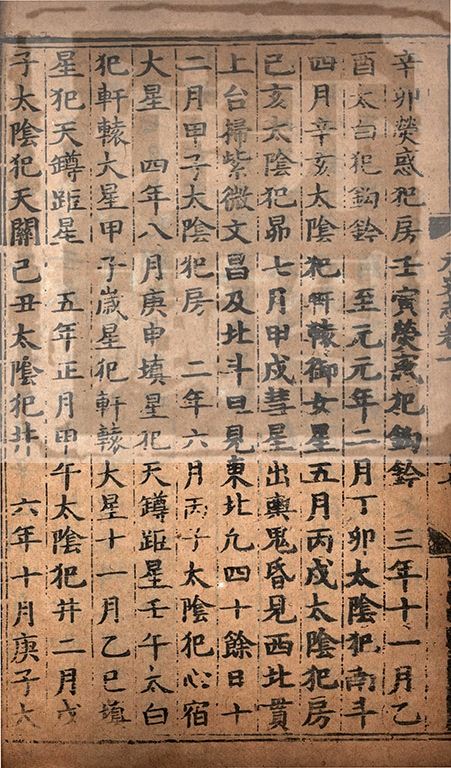 辛卯熒惑犯房壬寅熒惑犯鈎鈐　三年十一月乙
酉太白犯鈎鈐　至元元年二月丁卯太陰犯南斗
四月辛亥太陰犯軒轅御女星五月丙戌太陰犯房
己亥太陰犯昴七月甲戌彗星出輿鬼昏見西北貫
上台掃紫微文昌及北斗旦見東北凢四十餘日十
二月甲子太陰犯房　二年六月丙子太陰犯心宿
大星　四年八月庚申填星犯天罇距星壬午太白
犯軒轅大星甲子歲星犯軒轅大星十一月乙巳填
星犯天罇距星　五年正月甲午太陰犯井二月戊
子太陰犯天關己丑太陰犯井　六年十月庚子太